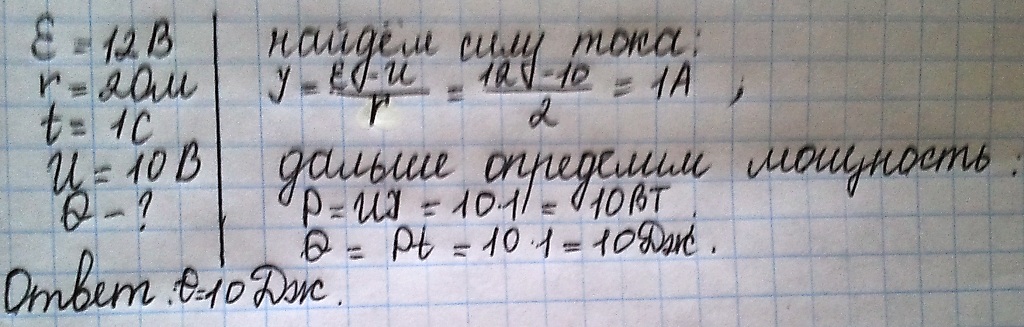 Ɛ = 12 В
r = 2 Ом
t = 1 С
U = 10 В
Q - ?
найдём силу тока:
У = (Ɛ - U)/r = (12 - 10)/2 = 1А ,
дальше определим мощность:
P = UУ = 10·1 = 10 ВТ
Q = Pt = 10·1 = 10 Дж.
Ответ: Q=10 Дж.